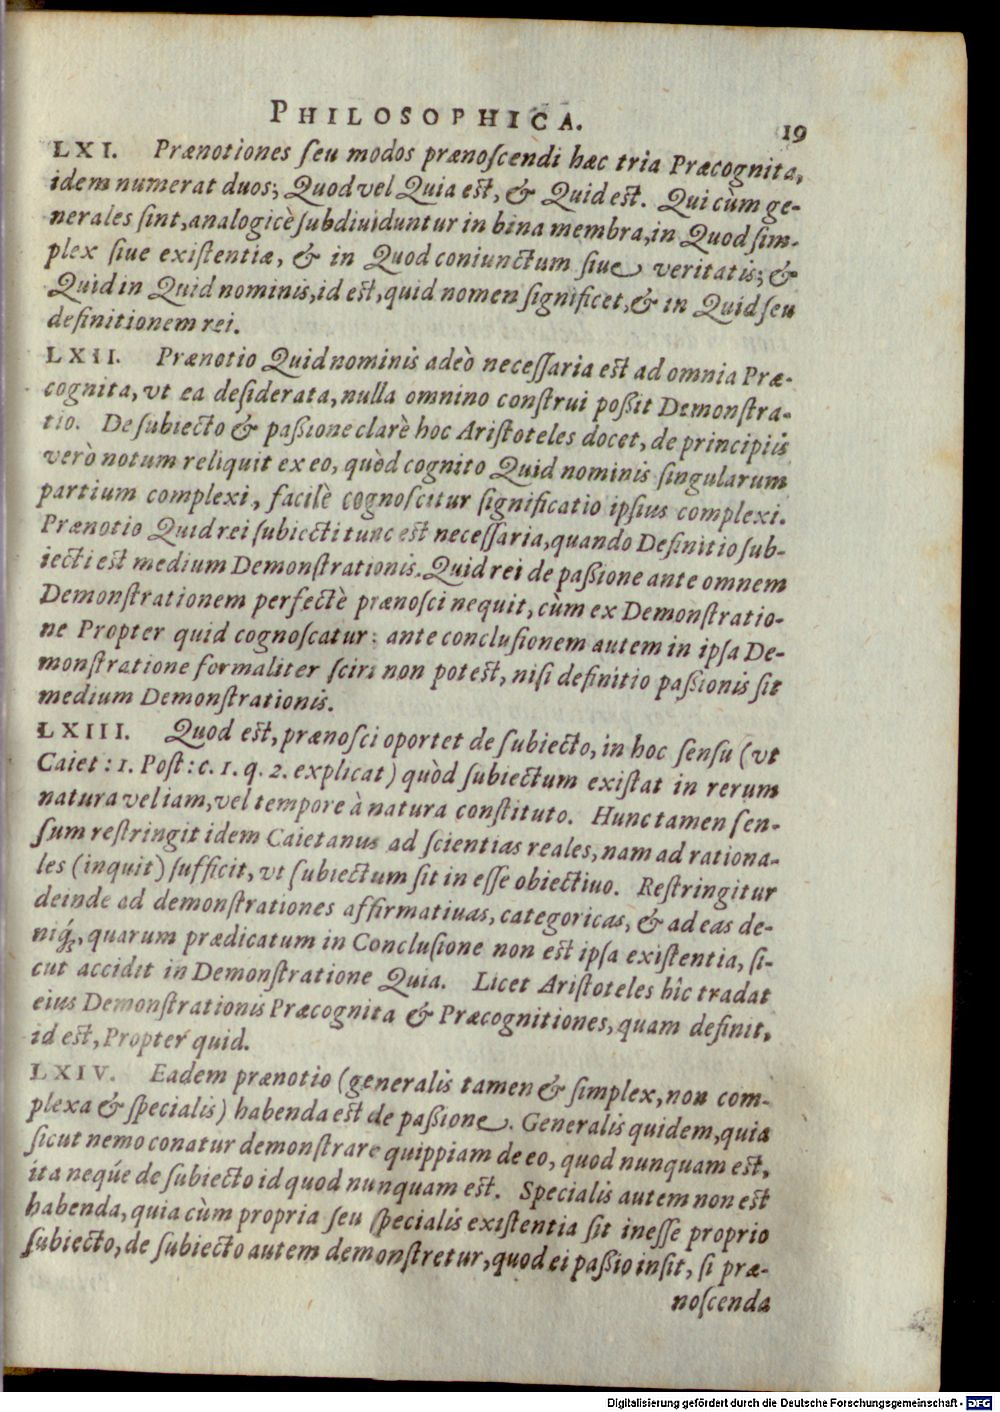 PHILOSOPHICA. 19
LXI. Prænotiones ſeu modos prænoſcendi hæc tria Præcognita,
idem numerat duos; Quod vel Quia est, & Quid est. Qui cùm ge-
nerales ſint, analogicè ſubdiuiduntur in bina membra, in Quod ſim-
plex ſiue exiſtentiæ, & in Quod coniunctum ſiue veritatis; &
Quid in Quid nominis, id est, quid nomen ſignificet, & in Quid ſeu
definitionem rei.
LXII. Prænotio Quid nominis adeò neceſſaria est ad omnia Præ-
cognita, vt ea deſiderata, nulla omnino conſtrui poßit Demonſtra-
tio. De ſubiecto & paßione clarè hoc Ariſtoteles docet, de principiis
verò notum reliquit ex eo, quòd cognito Quid nominis ſingularum
partium complexi, facilè cognoſcitur ſignificatio ipſius complexi.
Prænotio Quid rei ſubiecti tunc est neceſſaria, quando Definitio ſub-
iecti est medium Demonſtrationis. Quid rei de paßione ante omnem
Demonſtrationem perfectè prænoſci nequit, cùm ex Demonſtratio-
ne Propter quid cognoſcatur: ante concluſionem autem in ipſa De-
monſtratione formaliter ſciri non potest, niſi definitio paßionis ſit
medium Demonſtrationis.
LXIII. Quod est, prænoſci oportet de ſubiecto, in hoc ſenſu (vt
Caiet: 1. Poſt: c. 1. q. 2. explicat) quòd ſubiectum exiſtat in rerum
natura vel iam, vel tempore à natura conſtituto. Hunc tamen ſen-
ſum reſtringit idem Caietanus ad ſcientias reales, nam ad rationa-
les (inquit) ſufficit, vt ſubiectum ſit in eſſe obiectiuo. Reſtringitur
deinde ad demonſtrationes affirmatiuas, categoricas, & ad eas de-
niq́₃, quarum prædicatum in Concluſione non est ipſa exiſtentia, ſi-
cut accidit in Demonſtratione Quia. Licet Ariſtoteles hîc tradat
eius Demonſtrationis Præcognita & Præcognitiones, quam definit,
id est, Propter quid.
LXIV. Eadem prænotio (generalis tamen & ſimplex, non com-
plexa & ſpecialis) habenda est de paßione. Generalis quidem, quia
ſicut nemo conatur demonſtrare quippiam de eo, quod nunquam est,
ita neq́ue de ſubiecto id quod nunquam est. Specialis autem non est
habenda, quia cùm propria ſeu ſpecialis exiſtentia ſit ineſſe proprio
ſubiecto, de ſubiecto autem demonſtretur, quod ei paßio inſit, ſi præ-
noſcenda
Digitalisierung gefördert durch die Deutsche Forschungsgemeinschaft - DFG